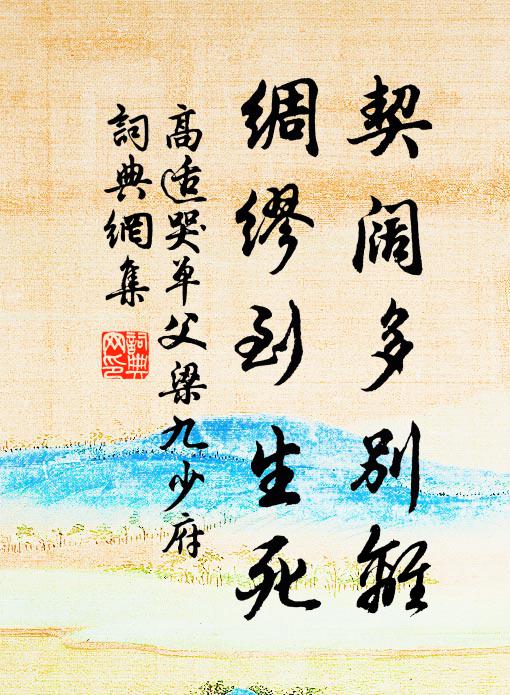 契阔多别離
绸缪到生死
高适哭单父梁九少府
詞典網集
詞典網印